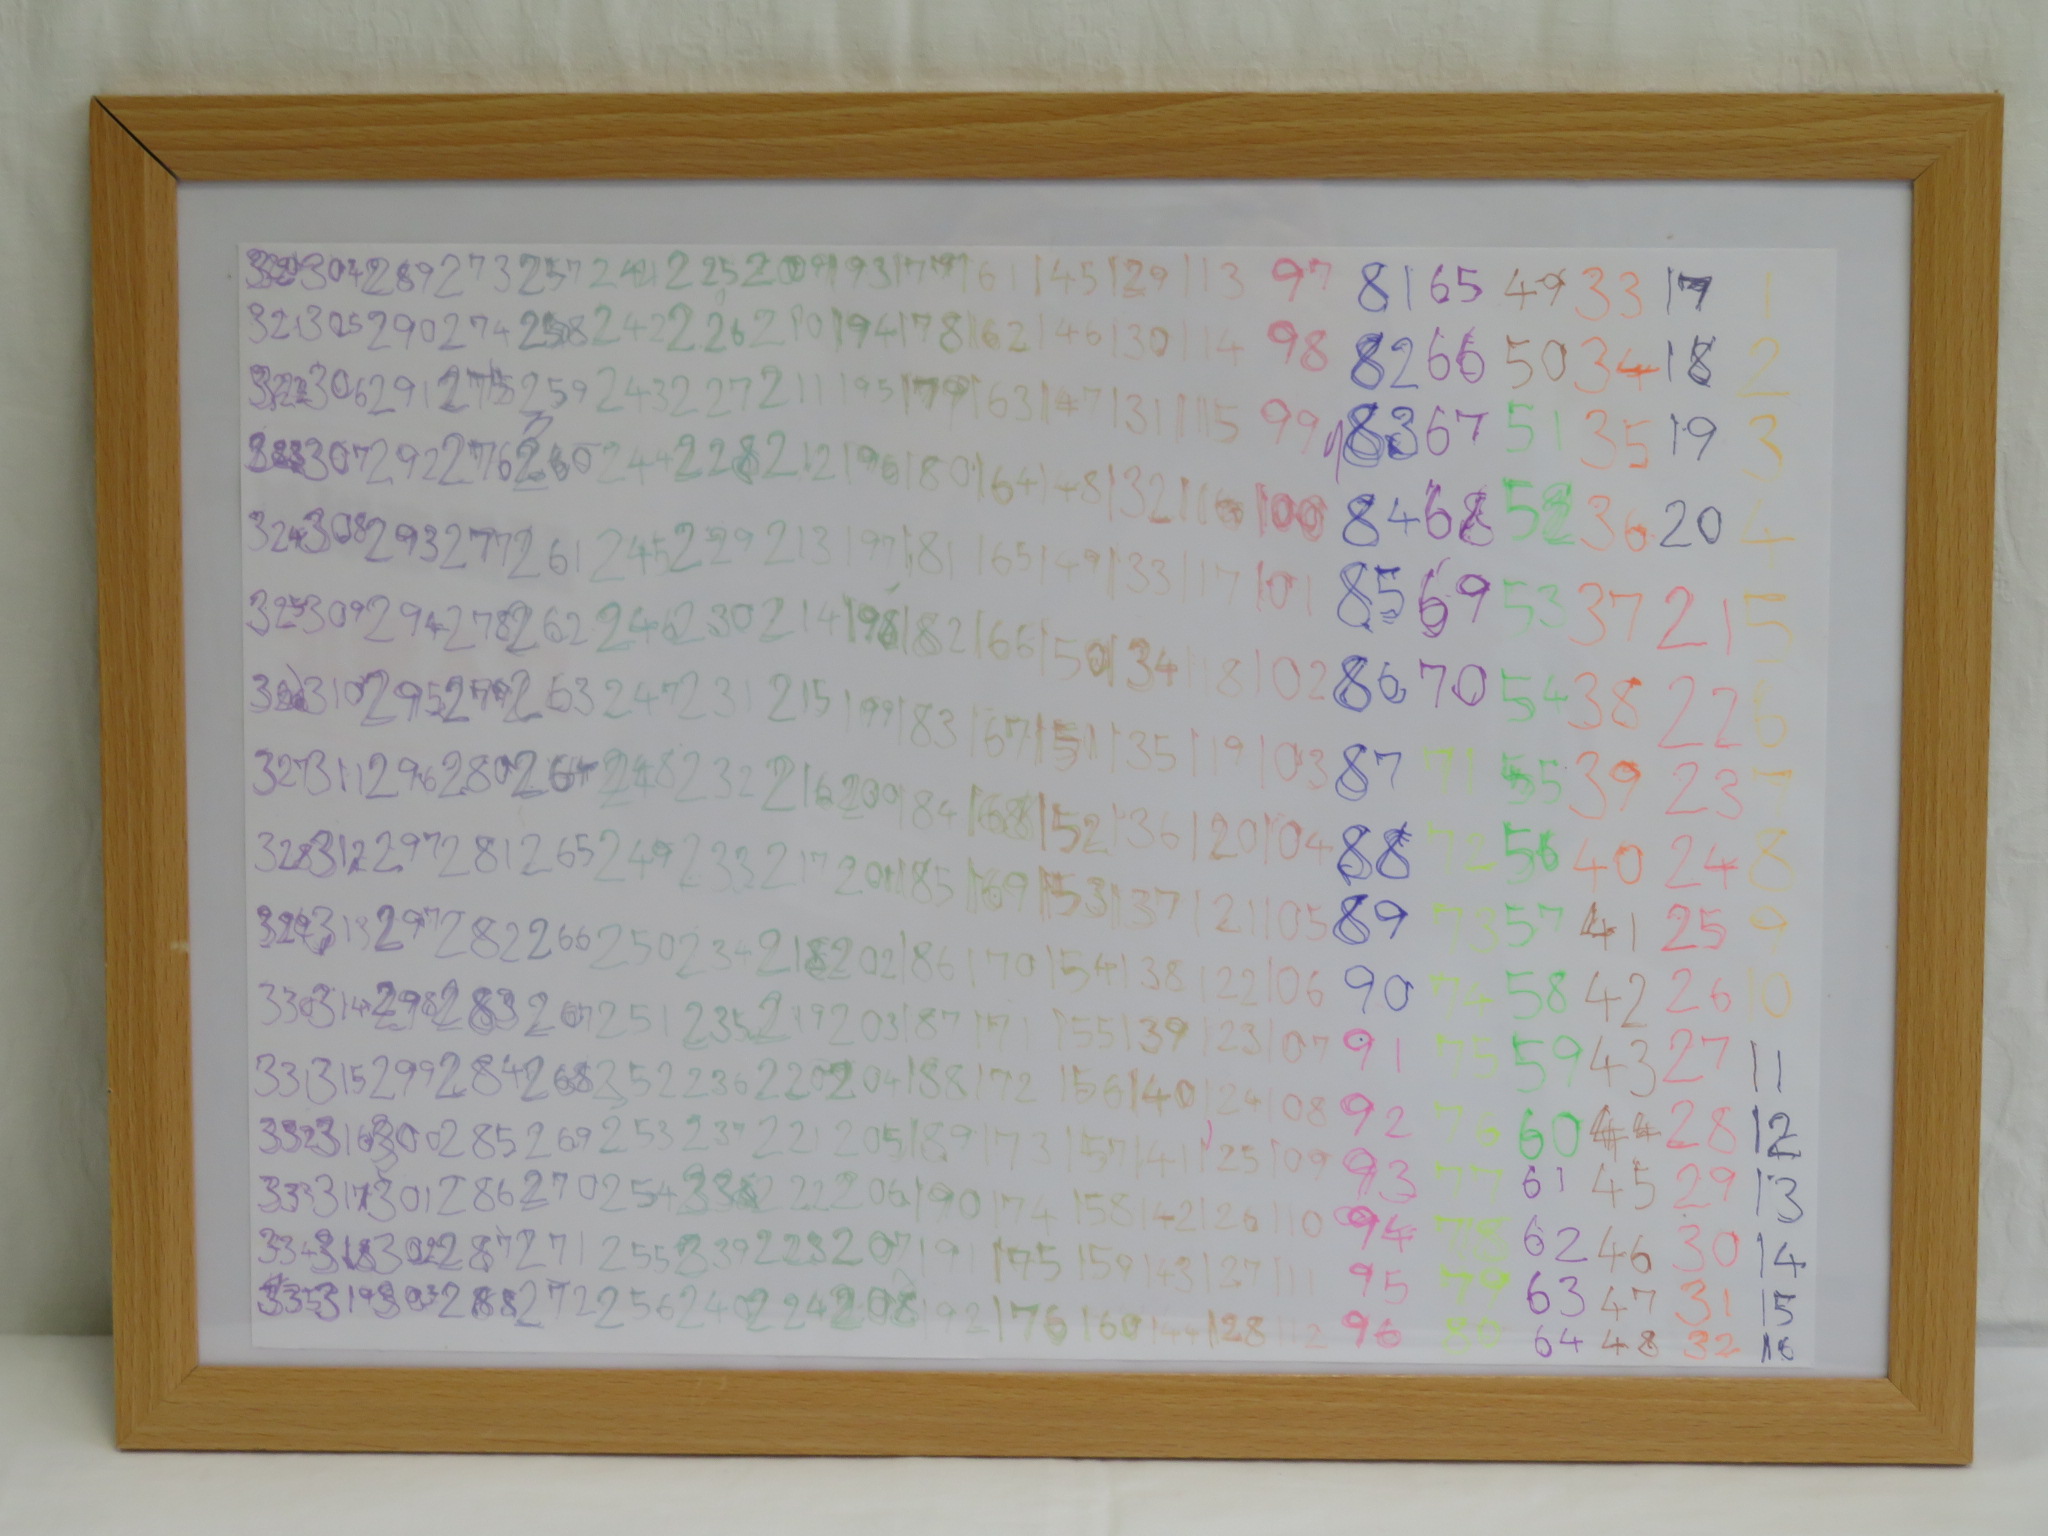 320 304 289 273 257 241 225 209 193 177 161 145 129 113 97 81 65 49 33 17 1
321 305 290 274 258 242 226 210 194 178 162 146 130 114 98 82 66 50 34 18 2
322 306 291 275 259 243 227 211 195 179 163 147 131 115 99 83 67 51 35 19 3
323 307 292 276 260 244 228 212 196 180 164 148 132 116 100 84 68 52 36 20 4
324 308 293 277 261 245 229 213 197 181 165 149 133 117 101 85 69 53 37 21 5
325 309 294 278 262 246 230 214 198 182 166 150 134 118 102 86 70 54 38 22 6
326 310 295 279 263 247 231 215 199 183 167 151 135 119 103 87 71 55 39 23 7
327 311 296 280 264 248 232 216 200 184 168 152 136 120 104 88 72 56 40 24 8
328 312 297 281 265 249 233 217 201 185 169 153 137 121 105 89 73 57 41 25 9
329 313 297 282 266 250 234 218 202 186 170 154 138 122 106 90 74 58 42 26 10
330 314 298 283 267 251 235 219 203 187 171 155 139 123 107 91 75 59 43 27 11
331 315 299 284 268 252 236 220 204 188 172 156 140 124 108 92 76 60 44 28 12
332 316 300 285 269 253 237 221 205 189 173 157 141 125 109 93 77 61 45 29 13
333 317 301 286 270 254 338 222 206 190 174 158 142 126 110 94 78 62 46 30 14
334 318 302 287 271 255 339 223 207 191 175 159 143 127 111 95 79 63 47 31 15
335 319 303 288 272 256 240 224 208 192 176 160 144 128 112 96 80 64 48 32 16